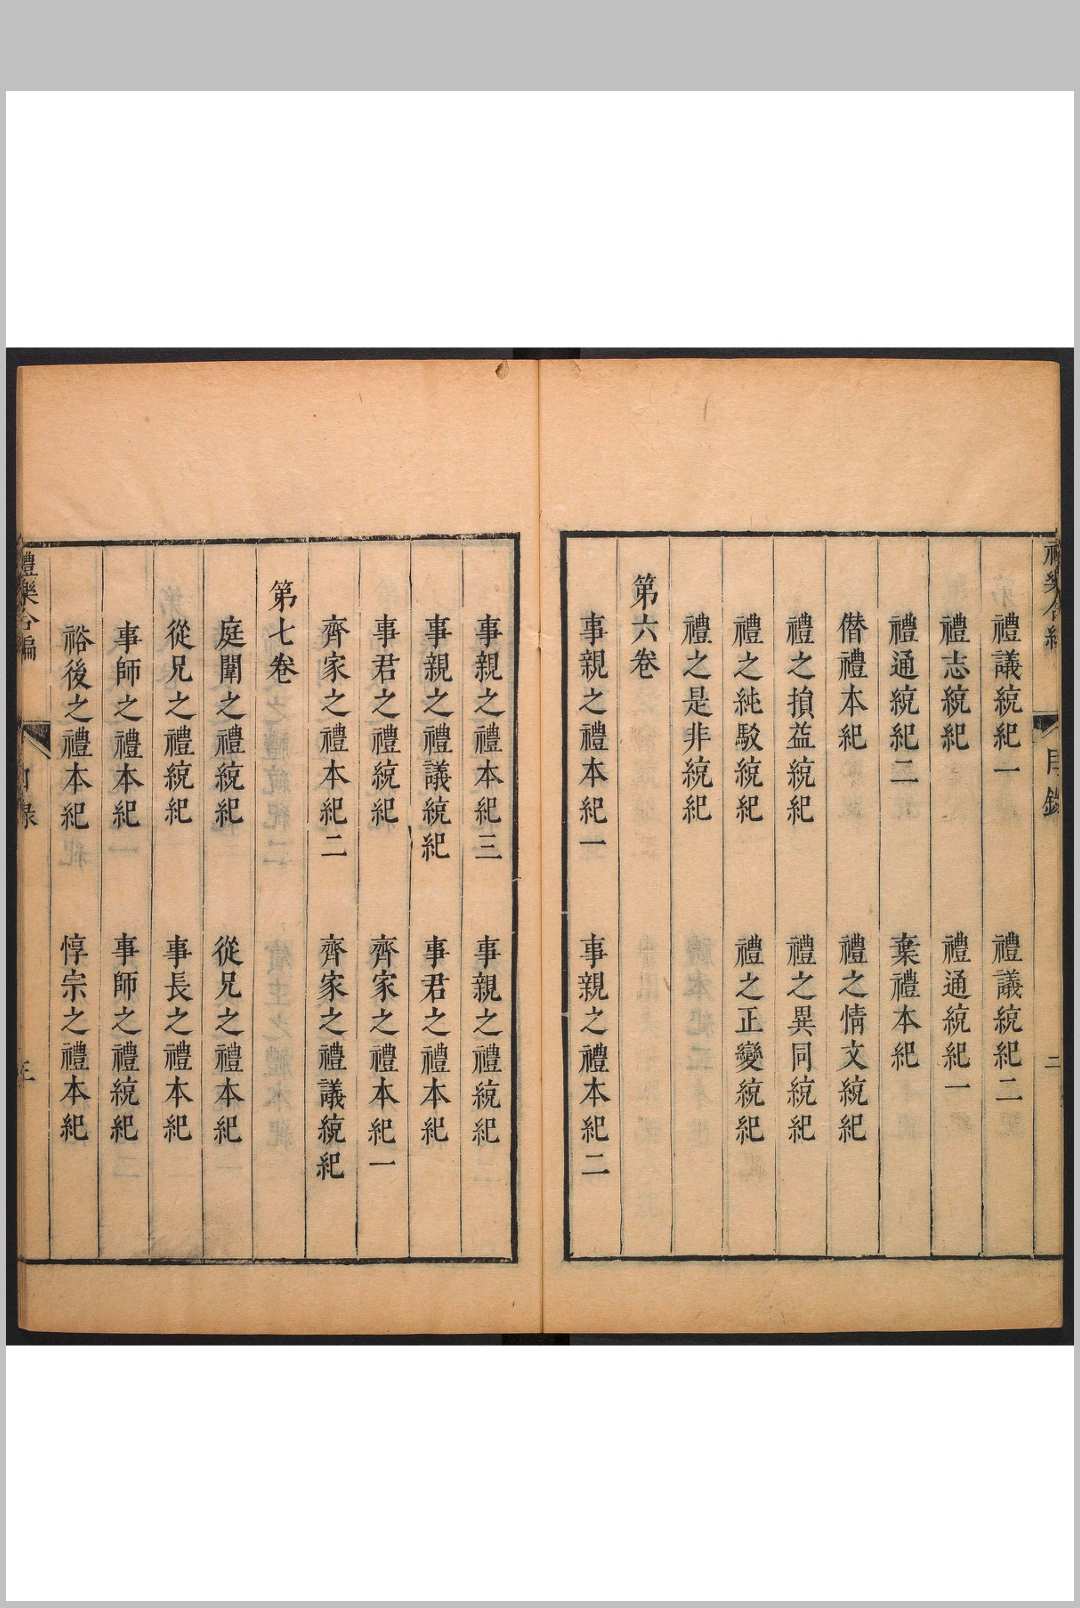 禮樂合編 目錄 二
禮議統紀一 禮議統紀二
禮志統紀 禮通統紀一
禮通統紀二 棄禮本紀
僭禮本紀 禮之情文統紀
禮之損益統紀 禮之異同統紀
禮之純駁統紀 禮之正變統紀
禮之是非統紀
第六卷
事親之禮本紀一 事親之禮本紀二
事親之禮本紀三 事親之禮統紀
事親之禮議統紀 事君之禮本紀
事君之禮統紀 齊家之禮本紀一
齊家之禮本紀二 齊家之禮議統紀
第七卷
庭闈之禮統紀 從兄之禮本紀
從兄之禮統紀 事長之禮本紀
事師之禮本紀 事師之禮統紀
裕後之禮本紀 惇宗之禮本紀
禮樂合編 目錄 三